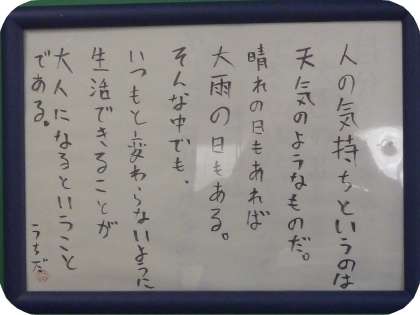 人の気持ちというのは
天気のようなものだ。
晴れの日もあれば
大雨の日もある。
そんな中でも、
いつもと変わらないように
生活できることが
大人になるということ
である。
うちだ